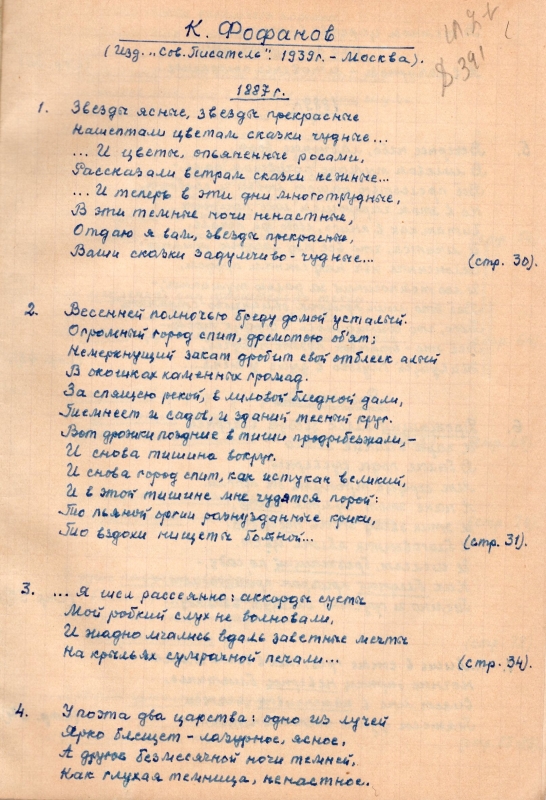 К. Фофанов
(Изд. „Сов. Писатель". 1939г. - Москва).
1887 г.
1. Звезды ясные, звезды прекрасные
Нашептали цветам сказки чудные...
... И цветы, опьяненные росами,
Рассказали ветрам сказки нежные...
... И теперь в эти дни многотрудные,
В эти темные ночи ненастные,
Отдаю я вам, звезды прекрасные,
Ваши сказки задумчиво-чудные... (стр. 30).
2. Весенней полночью бреду домой усталый.
Огромный город спит, дремотою объят;
Немеркнущий закат дробит свой отблеск алый
В окошках каменных громад.
За спящею рекой, в лиловой бледной дали,
Темнеет и садов, и зданий тесный круг.
Вот дрожки поздние в тиши продребезжали,-
И снова тишина вокруг.
И снова город спит, как истукан великий,
И в этой тишине мне чудятся порой:
То пьяной оргии разнузданные крики,
То вздохи нищеты больной... (стр. 31).
3. ... Я шел рассеянно: аккорды суеты
Мой робкий слух не волновали,
И жадно мчались вдаль заветные мечты
На крыльях сумрачной печали... (стр. 34).
4. У поэта два царства: одно из лучей
Ярко блещет - лазурное, ясное,
А другое безмесячной ночи темней,
Как глухая темница, ненастное.